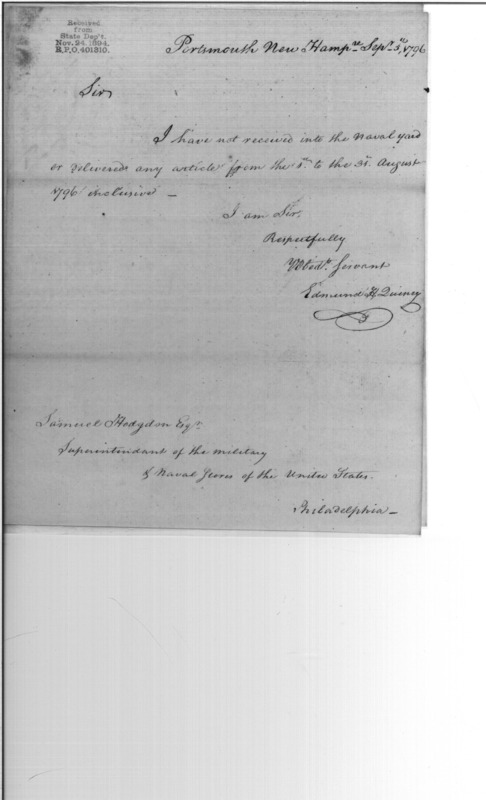 Received
from
State Dep't.
Nov. 24, 1894.
R.P.O. 401310.
Portsmouth New Hampre Sepr 5th 1796
Sir
I have not received into the Naval yard
or delivered any article from the 1st to the 31st August
1796 inclusive —
I am Sir,
Respectfully
Yr Obedt. Servant
Edmund H Quincy
Samuel Hodgdon Esqr.
Superintendant of the military
& Naval Stores of the United States.
Philadelphia —